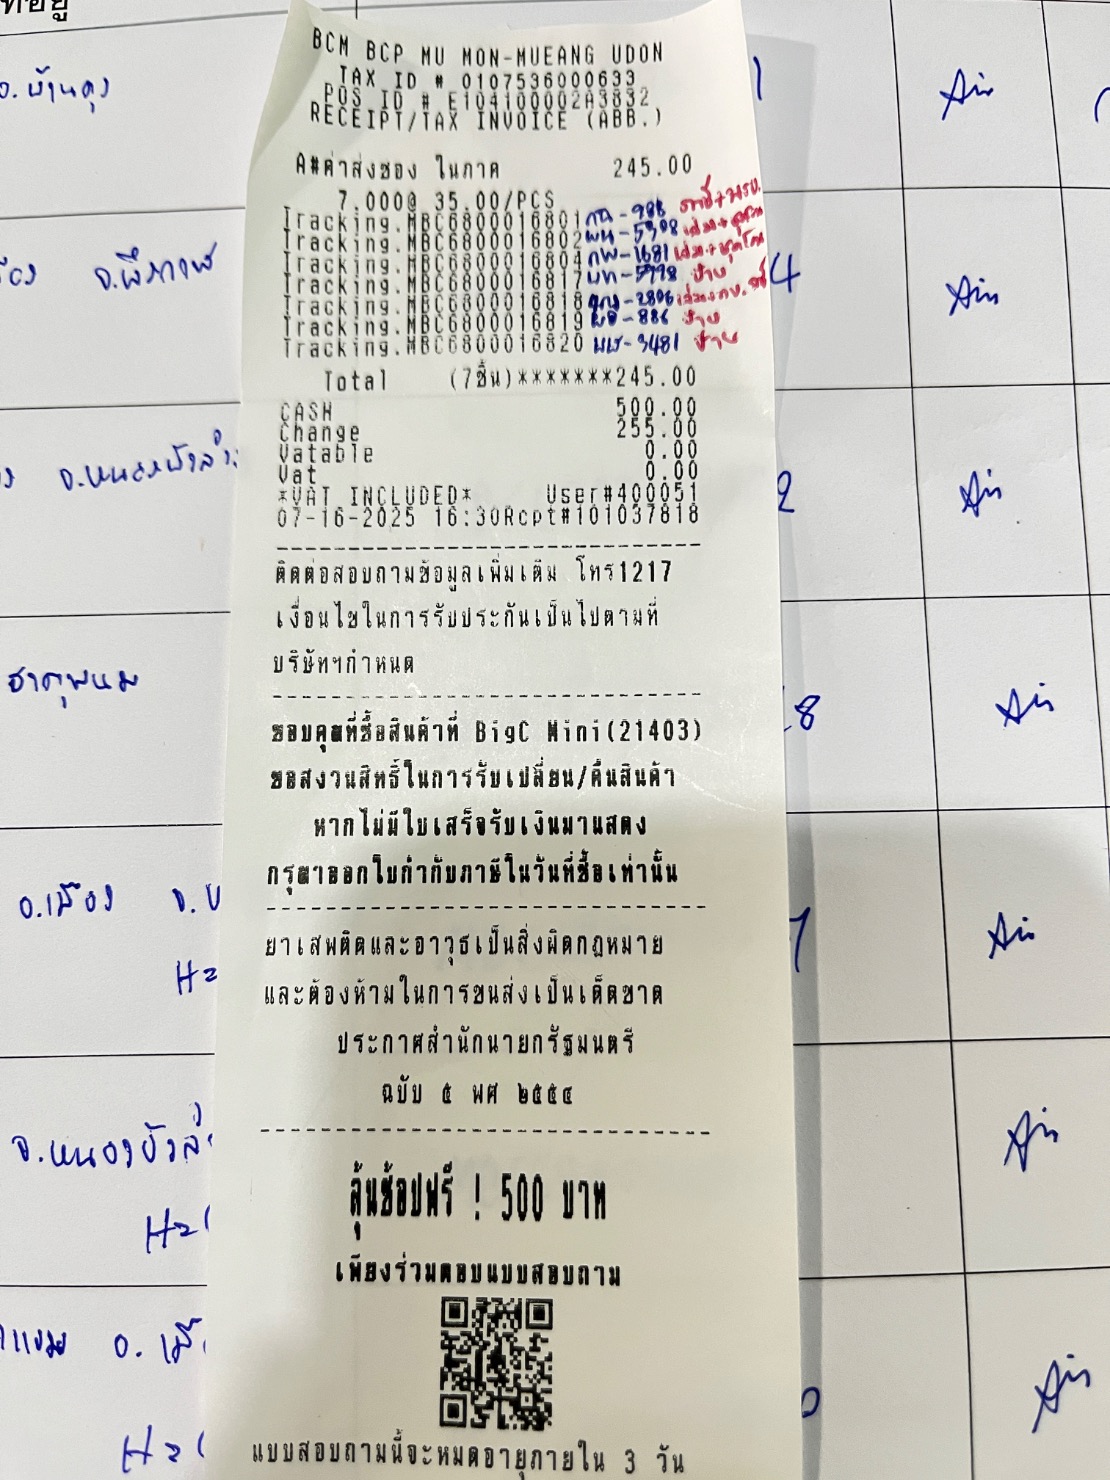 ที่อยู่
BCM BCP MU MON-MUEANG UDON
TAX ID # 0107536000633
POS ID # E104100002A3832
RECEIPT/TAX INVOICE (ABB.)
A#ค่าส่งของ ในภาค 245.00
7.000@ 35.00/PCS
Tracking.MBC6800016801 กฉ-988
Tracking.MBC6800016802 -5908
Tracking.MBC6800016804 กพ-1681
Tracking.MBC6800016817 -5798 ป้าย
Tracking.MBC6800016818 -2806
Tracking.MBC6800016819 -886 ป้าย
Tracking.MBC6800016820 -3481 ป้าย
Total (7ชิ้น)*******245.00
CASH 500.00
Change 255.00
Vatable 0.00
Vat 0.00
*VAT INCLUDED* User#400051
07-16-2025 16:30Rcpt#101037818
ติดต่อสอบถามข้อมูลเพิ่มเติม โทร1217
เงื่อนไขในการรับประกันเป็นไปตามที่
บริษัทฯกำหนด
ขอบคุณที่ซื้อสินค้าที่ BigC Mini(21403)
ขอสงวนสิทธิ์ในการรับเปลี่ยน/คืนสินค้า
หากไม่มีใบเสร็จรับเงินมาแสดง
กรุณาออกใบกำกับภาษีในวันที่ซื้อเท่านั้น
ยาเสพติดและอาวุธเป็นสิ่งผิดกฎหมาย
และต้องห้ามในการขนส่งเป็นเด็ดขาด
ประกาศสำนักนายกรัฐมนตรี
ฉบับ ๕ พศ ๒๕๕๔
ลุ้นช้อปฟรี ! 500 บาท
เพียงร่วมตอบแบบสอบถาม
แบบสอบถามนี้จะหมดอายุภายใน 3 วัน
อ.บ้านดุง
จ.บึงกาฬ
4
จ.หนองบัวลำ
2
ธาตุพนม
8
อ.เมือง
จ.หนองบัวลำ
อ. เมื